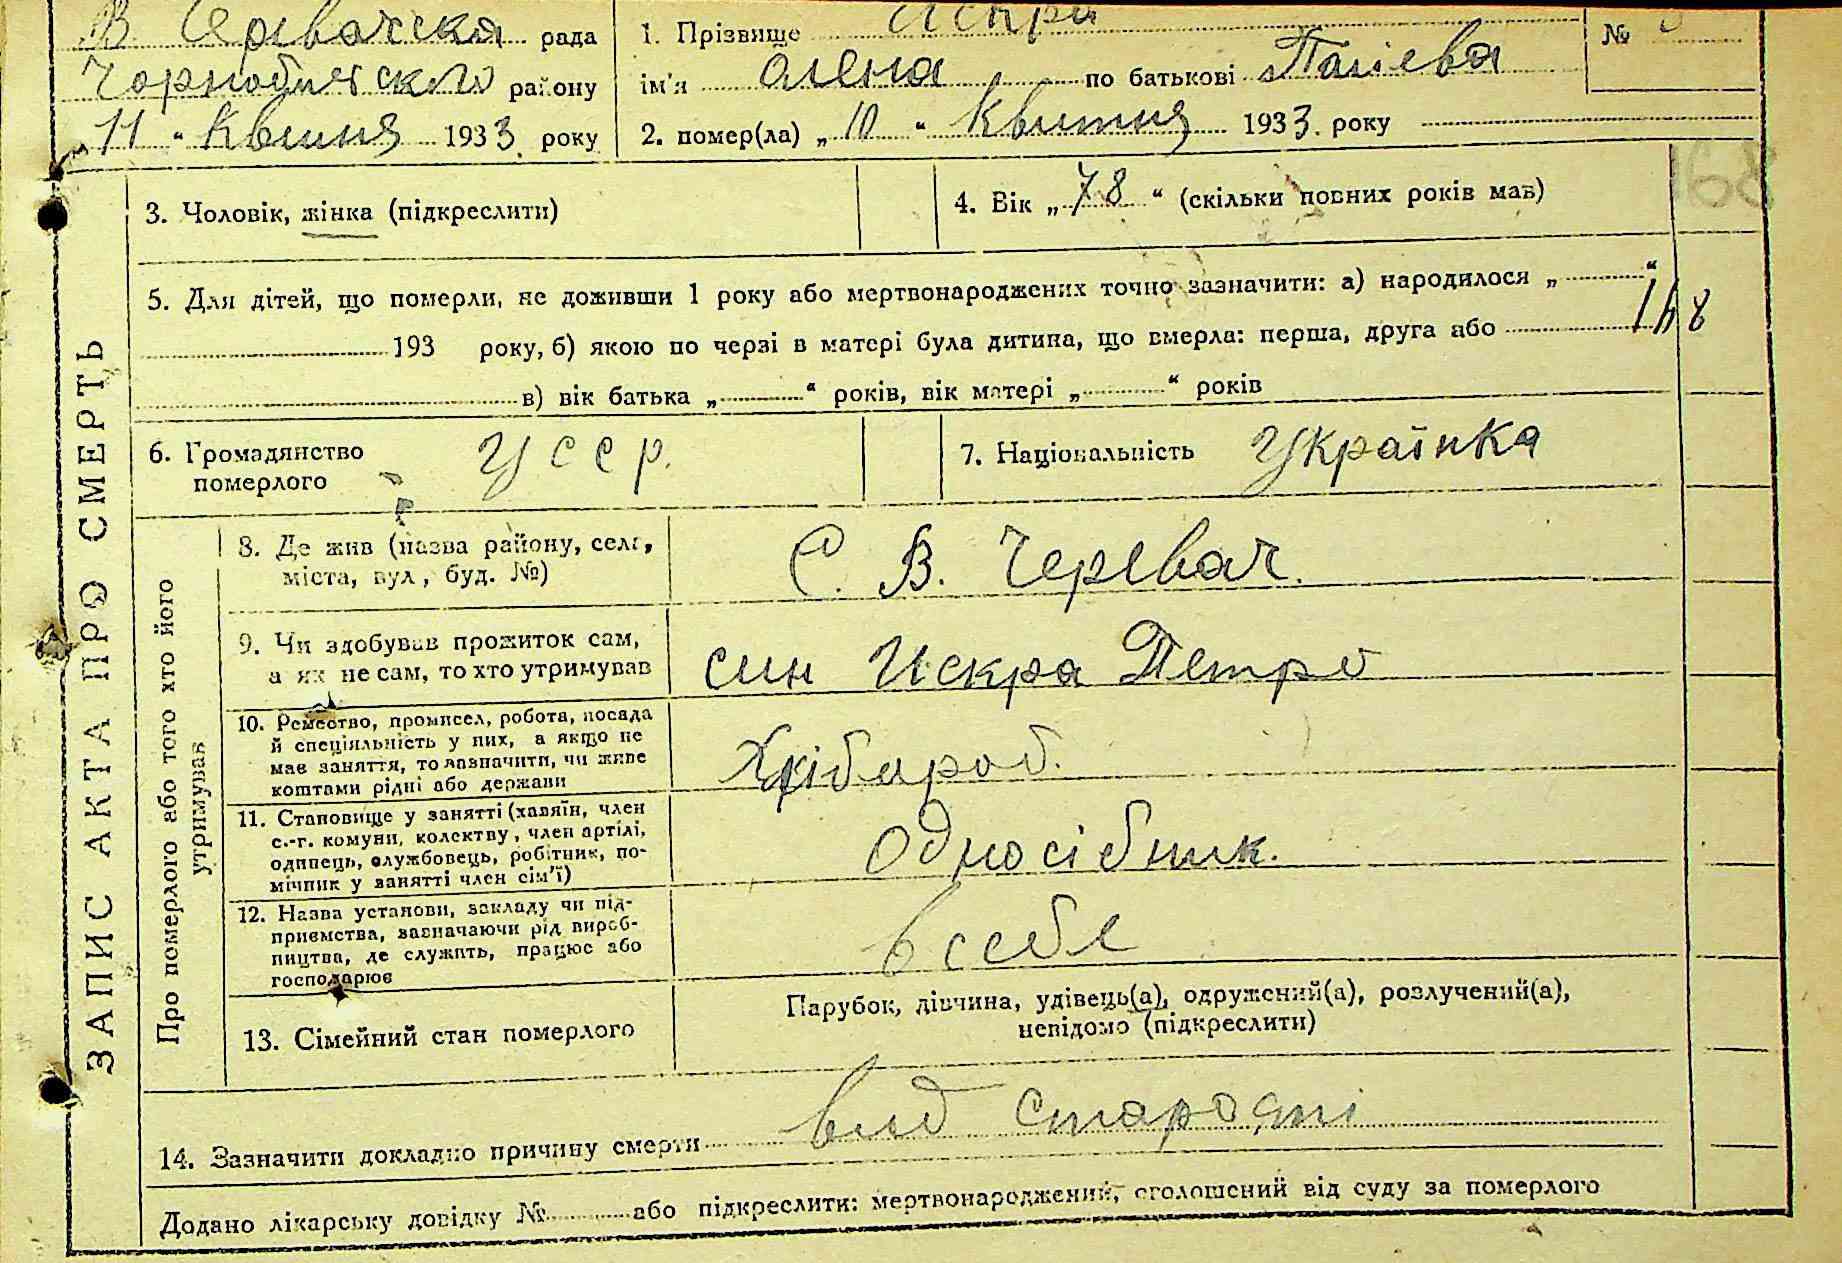 В Черевачска рада
Чорнобильского району
"11 " Квитня 1933 року
1. Прізвище Искра
ім'я Олена по батькові
2. помер(ла) „10" Квитня 1933 року
№
3. Чоловік, жінка (підкреслити)
4. Вік „78" (скільки повних років мав)
168
5. Для дітей, що померли, не доживши 1 року або мертвонароджених точно зазначити: а) народилося „ "
193 року, б) якою по черзі в матері була дитина, що вмерла: перша, друга або
168
в) вік батька „ " років, вік матері „ " років
6. Громадянство
померлого
УССР.
7. Національність Українка
ЗАПИС АКТА ПРО СМЕРТЬ
Про померлого або того хто його
утримував
8. Де жив (назва району, села,
міста, вул, буд. №)
С. В. Черевач.
9. Чи здобував прожиток сам,
а як не сам, то хто утримував
син Искра Петро
10. Ремество, промисел, робота, посада
й спеціяльність у них, а якщо не
має заняття, то зазначити, чи живе
коштами рідні або держави
Хлібороб.
11. Становище у занятті (хазяїн, член
с.-г. комуни, колектву, член артілі,
одинець, службовець, робітник, по-
мічник у занятті член сім'ї)
Односібник.
12. Назва установи, закладу чи під-
приємства, зазначаючи рід вироб-
ництва, де служить, працює або
господарює
в себе
13. Сімейний стан померлого
Парубок, дівчина, удівець(а), одружений(а), розлучений(а),
невідомо (підкреслити)
14. Зазначити докладно причину смерти вид старости
Додано лікарську довідку № або підкреслити: мертвонароджений, оголошений від суду за померлого